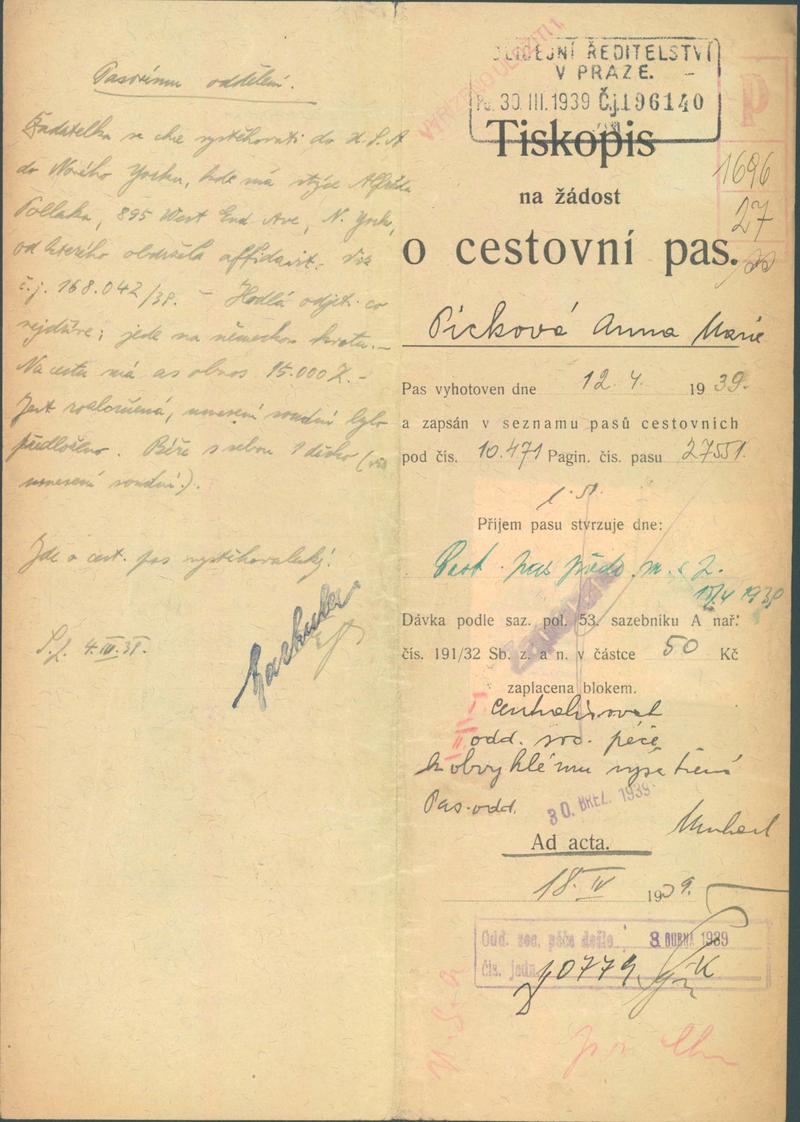 Pasovímu oddělení.
Žadatelka se chce vystěhovati do U.S.A
do Nového Yorku, kde má strýce Alfréda
Pollaka, 895 West End Ave, N. York,
od kterého obdržela affidavit. Viz
č.j. 168.042/38. – Hodlá odjeti co
nejdříve; jede na německou kvotu. –
Na cestu má as obnos 15.000 K. –
Jest rozloučená, usnesení soudní bylo
předloženo. Béře s sebou 1 dítko (viz
usnesení soudní).
Jde o cest. pas vystěhovalecký!
VYŘÍZENO ULOŽITI!
POLICEJNÍ ŘEDITELSTVÍ
V PRAZE.
30. III. 1939 Č.j. 196140
P
1696
27
Tiskopis
na žádost
o cestovní pas.
Picková Anna Marie
Pas vyhotoven dne 12. 4. 1939.
a zapsán v seznamu pasů cestovních
pod čís. 10.471 Pagin. čís. pasu 27551.
Příjem pasu stvrzuje dne:
Cest. pas
15/4 1939
Dávka podle saz. pol. 53. sazebníku A nař.
čís. 191/32 Sb. z. a n. v částce 50 Kč
zaplacena blokem.
I. centralisovat
II. odd. soc. péče
k obvyklému vyšetření
Pas. odd.
30. BŘEZ. 1939
Ad acta.
18. IV 1939.
Odd. soc. péče došlo 3. DUBNA 1939
čís. jedn. 10779
U.S.A